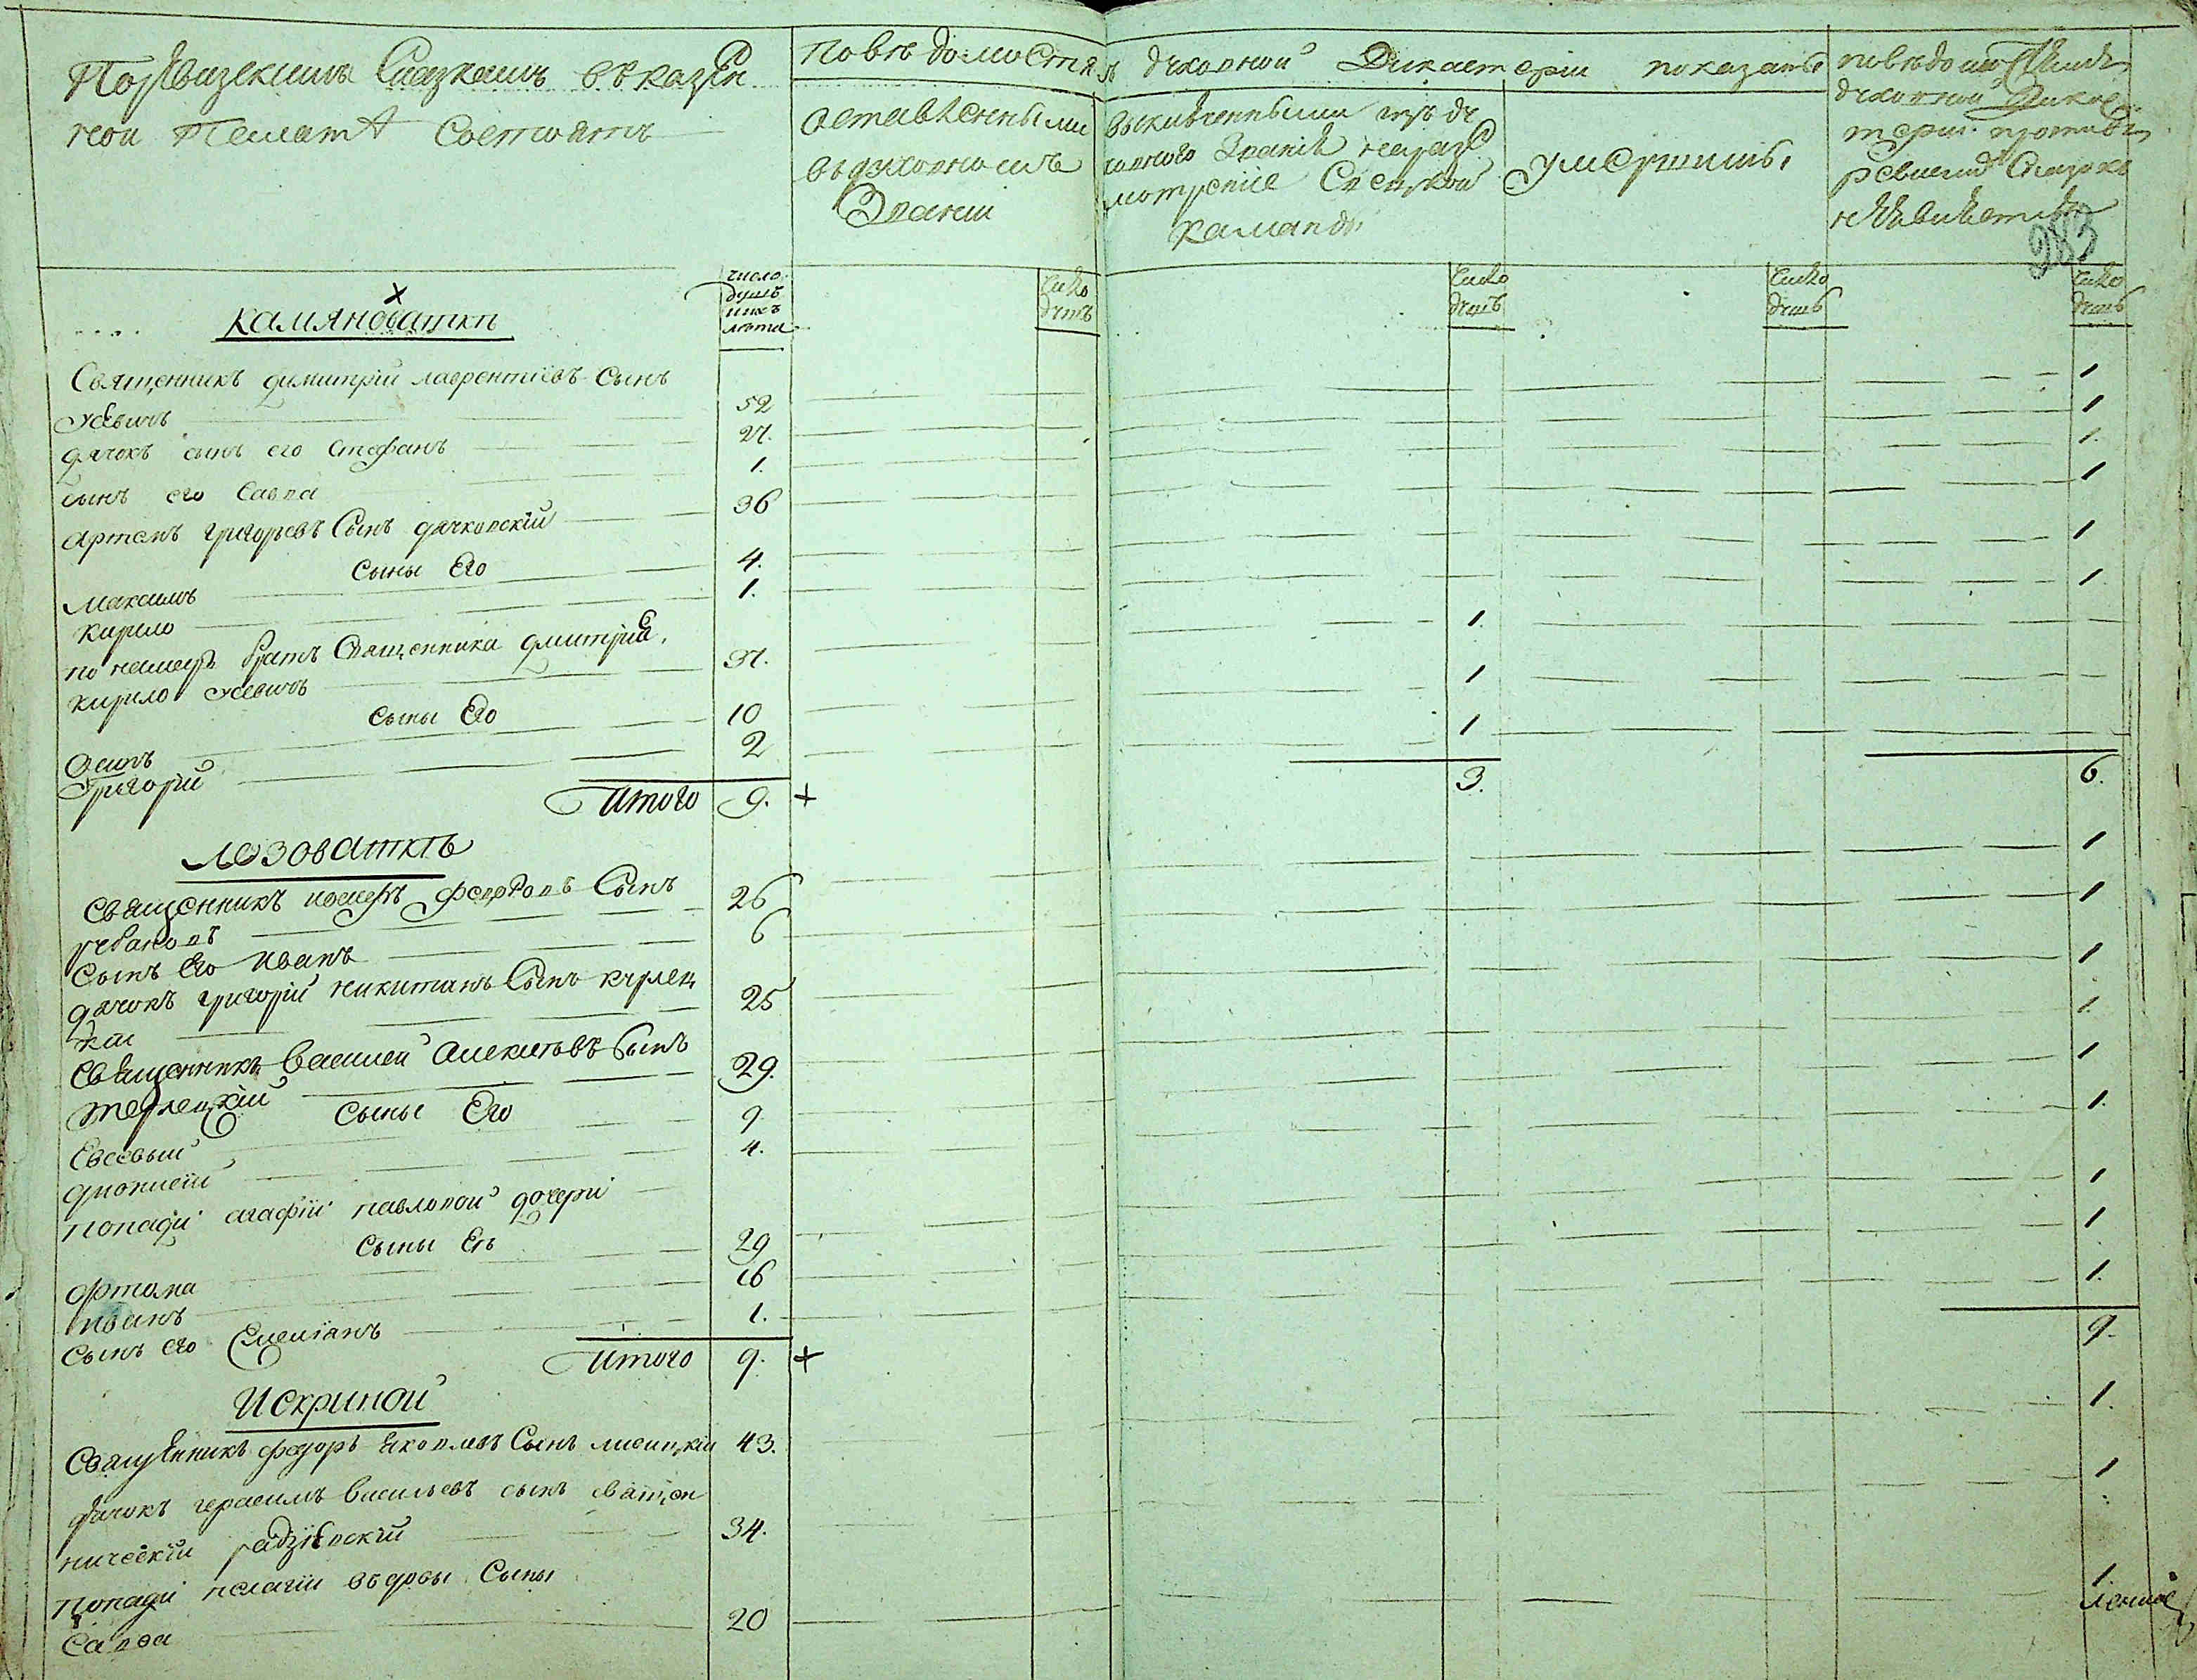 По ревизским Сказкамъ въ казен
ной Палатѣ Состоятъ
По вѣдомостямъ духовной Дикастеріи показаны
оставленными
въ духовномъ
Званіи
выключенными изъ ду
ховного Званія на раз
мотреніе Свецкой
команды
умершимъ
по вѣдомостямъ
духовной Дикас
теріи противъ
ревизкихъ Сказокъ
не явилось
283
число
душъ
ихъ
лѣта
число
душъ
число
душъ
число
душъ
число
душъ
камяноватки
Священникъ димитрій лаврентіевъ Сынъ
Усевичъ 52 1
дячокъ сынъ его Стефанъ 27. 1
сынъ его Савва 1. 1.
артемъ григорьевъ Сынъ дячковскій 36 1
Сыны Его
Максимъ 4. 1
кирило 1. 1.
по немъ братъ Священника дмитрия
кирило Усевичъ 37. 1.
Сыны Его
Осипъ 10 1
Григорій 2 1
Итого 9. + 3. 6.
Лозоватки
Священникъ иосифъ федоровъ Сынъ
урбановъ 26 1
Сынъ Его Иванъ 6 1
дячокъ григорій никитинъ Сынъ
кій 25 1
Священникъ Василей алексѣевъ Сынъ
терлецкій 29. 1.
Сыны Его
Евсевий 9. 1
дионисій 4. 1.
попади агафіи павловой дочери
Сыны Ея
артома 29 1
иванъ 16 1
Сынъ его Емеліанъ 1. 1.
Итого 9. + 9.
Искриной
Священникъ федоръ яковлевъ Сынъ лисицкій 43. 1.
дячокъ герасимъ васильевъ сынъ священ
ническій радзіевскій 34. 1
попади пелагіи вдовы Сыны
Савва 20 1